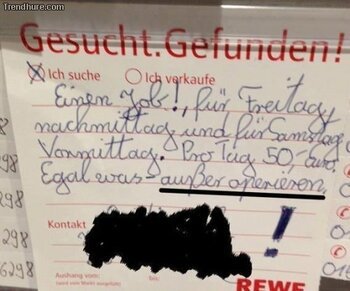 Trendhure.com
Gesucht.Gefunden!
Ich suche Ich verkaufe
Einen Job!, für Freitag
nachmittag und für Samstag
Vormittag. Pro Tag 50,- Euro.
Egal was - außer operieren.
!
Kontakt
298
298
298
6298
Aushang vom: bis:
(wird vom Markt ausgefüllt)
REWE